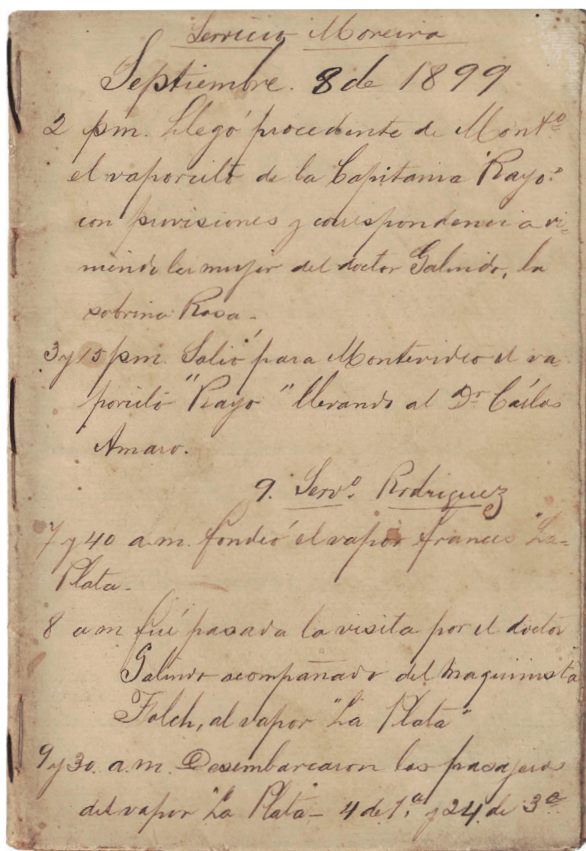 Servicio Moreira
Septiembre. 8 de 1899
2 pm. Llegó procedente de Montº
el vaporcito de la Capitania "Rayo"
con provisiones y correspondencia vi-
niendo la mujer del doctor Galindo, la
sobrina Rosa.
3 y 15 pm. Salió para Montevideo el va
porcito "Rayo" llevando al Dr. Cárlos
Amaro.
9. Servº. Rodriguez
7 y 40 a.m. fondeó el vapor frances "La-
Plata.
8 a m fué pasada la visita por el doctor
Galindo acompañado del maquinista
Folch, al vapor "La Plata"
9 y 30. a.m. Desembarcaron los pasajeros
del vapor "La Plata- 4 de 1ª. y 24. de 3ª